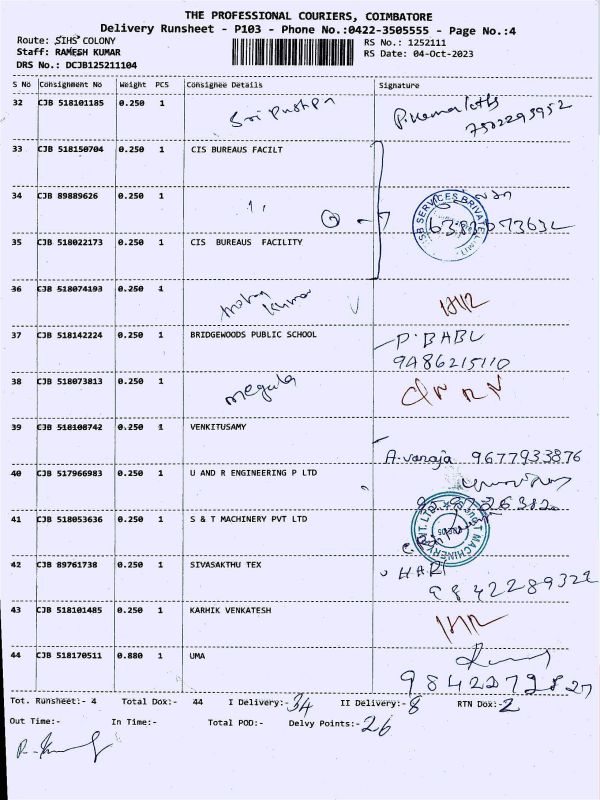 THE PROFESSIONAL COURIERS, COIMBATORE
Delivery Runsheet - P103 - Phone No.:0422-3505555 - Page No.:4
Route: SIHS COLONY RS No.: 1252111
Staff: RAMESH KUMAR RS Date: 04-Oct-2023
DRS No.: DCJB125211104
S No Consignment No Weight PCS Consignee Details Signature
32 CJB 518101185 0.250 1 Sri pushpa
7502295952
33 CJB 518150704 0.250 1 CIS BUREAUS FACILT
34 CJB 89889626 0.250 1
35 CJB 518022173 0.250 1 CIS BUREAUS FACILITY
36 CJB 518074193 0.250 1 mohan kumar
37 CJB 518142224 0.250 1 BRIDGEWOODS PUBLIC SCHOOL P. BABU
9486215110
38 CJB 518073813 0.250 1 megala
39 CJB 518108742 0.250 1 VENKITUSAMY
A.vanaja 9677933876
40 CJB 517966983 0.250 1 U AND R ENGINEERING P LTD
41 CJB 518053636 0.250 1 S & T MACHINERY PVT LTD
42 CJB 89761738 0.250 1 SIVASAKTHU TEX HARI
9842289322
43 CJB 518101485 0.250 1 KARHIK VENKATESH
44 CJB 518170511 0.880 1 UMA
9842272827
Tot. Runsheet:- 4 Total Dox:- 44 I Delivery:- 34 II Delivery:- 8 RTN Dox:- 2
Out Time:- In Time:- Total POD:- Delvy Points:- 26